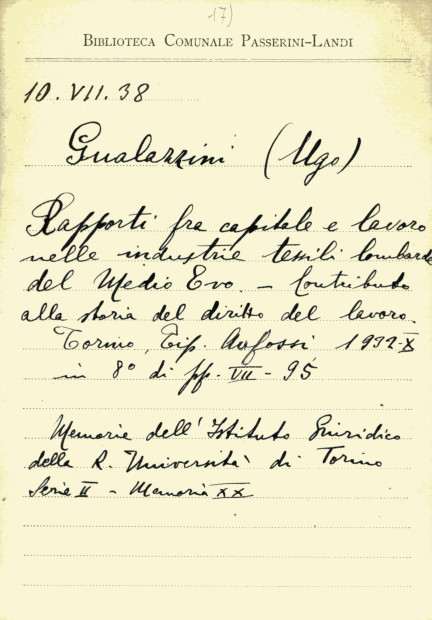 17)
BIBLIOTECA COMUNALE PASSERINI-LANDI
10.VII.38
Gualazzini (Ugo)
Rapporti fra capitale e lavoro
nelle industrie tessili lombarde
del Medio Evo. - Contributo
alla storia del diritto del lavoro.
Torino, Tip. Anfossi 1932-X
in 8° di pp. VII - 95
Memorie dell'Istituto Giuridico
della R. Università di Torino
Serie II - Memoria XX